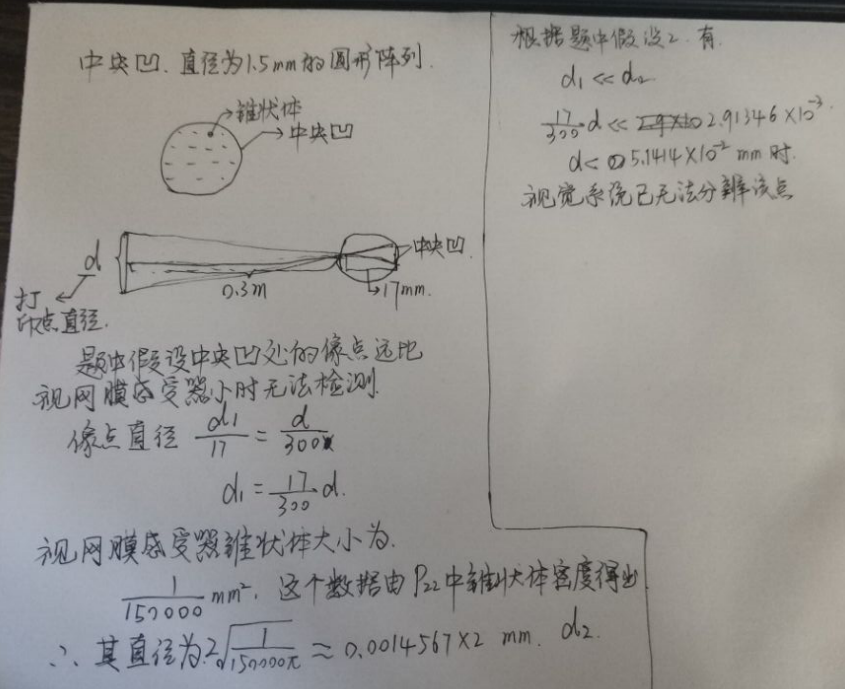 中央凹.直径为1.5mm的圆形阵列.
锥状体
中央凹
d
中央凹
0.3m
17mm.
打
印点直径.
题中假设中央凹处的像点远比
视网膜感受器小时无法检测.
像点直径 d1/17 = d/300
d1 = 17/300 d.
视网膜感受器锥状体大小为.
1/150000 mm², 这个数据由P22中锥状体密度得出
∴ 其直径为 2√(1/150000π) ≈ 0.0014567×2 mm. d2.
根据题中假设2.有.
d1 << d2
17/300 d << 2.91346×10⁻³.
d< 5.1414×10⁻² mm 时.
视觉系统已无法分辨该点